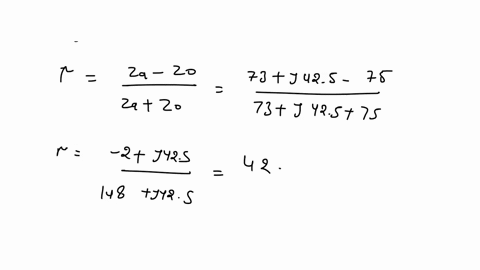 r = (2a - 20) / (2a + 20) = (73 + j42.5 - 75) / (73 + j42.5 + 75)
r = (-2 + j42.5) / (148 + j42.5) = 42.